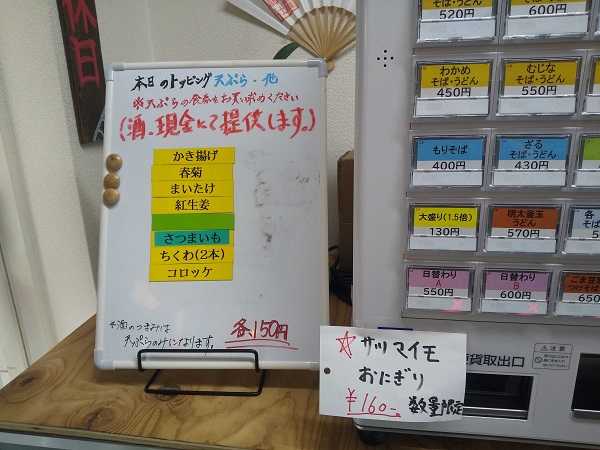 休日
本日のトッピング天ぷら・他
※天ぷらの食券をお買い求めください
(酒、現金にて提供します。)
かき揚げ
春菊
まいたけ
紅生姜
さつまいも
ちくわ(2本)
コロッケ
各150円
*酒のつまみは
天ぷらのみになります。
そば・うどん
520円
そば・うどん
600円
わかめ
そば・うどん
450円
むじな
そば・うどん
550円
もりそば
400円
ざる
そば・うどん
430円
大盛り(1.5倍)
130円
明太釜玉
うどん
570円
各
50
日替わり
A
550円
日替わり
B
600円
650
注意
貨取出口
☆サツマイモ
おにぎり
¥160-
数量限定